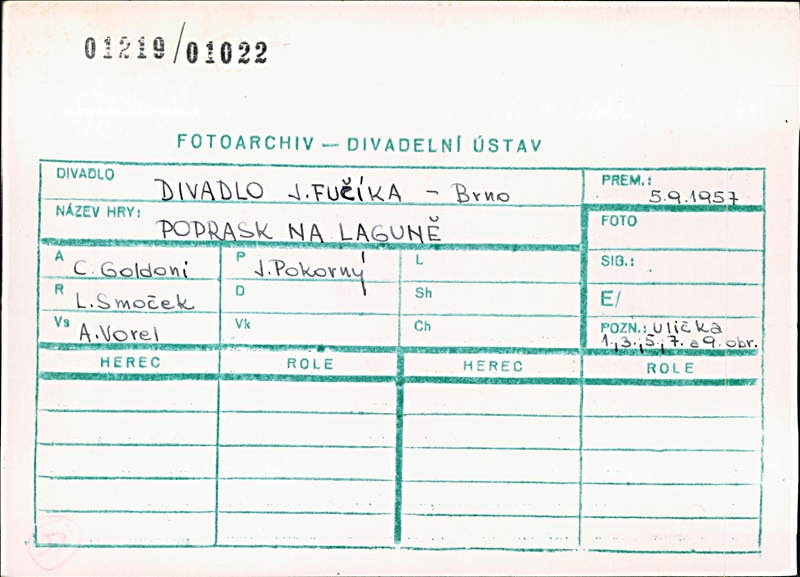 01219/01022
FOTOARCHIV – DIVADELNÍ ÚSTAV
DIVADLO DIVADLO J. FUČÍKA – Brno PREM.: 5.9.1957
NÁZEV HRY: POPRASK NA LAGUNĚ FOTO
A C. Goldoni P J. Pokorný L SIG.:
R L. Smoček D Sh E/
Vs A. Vorel Vk Ch POZN.: ulička
1.,3.,5.,7. a 9. obr.
HEREC ROLE HEREC ROLE